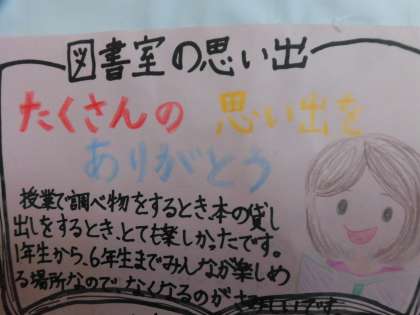 図書室の思い出
たくさんの 思い出を
ありがとう
授業で調べ物をするとき、本の貸し
出しをするとき、とても楽しかったです。
1年生から、6年生までみんなが楽しめ
る場所なので、なくなるのが